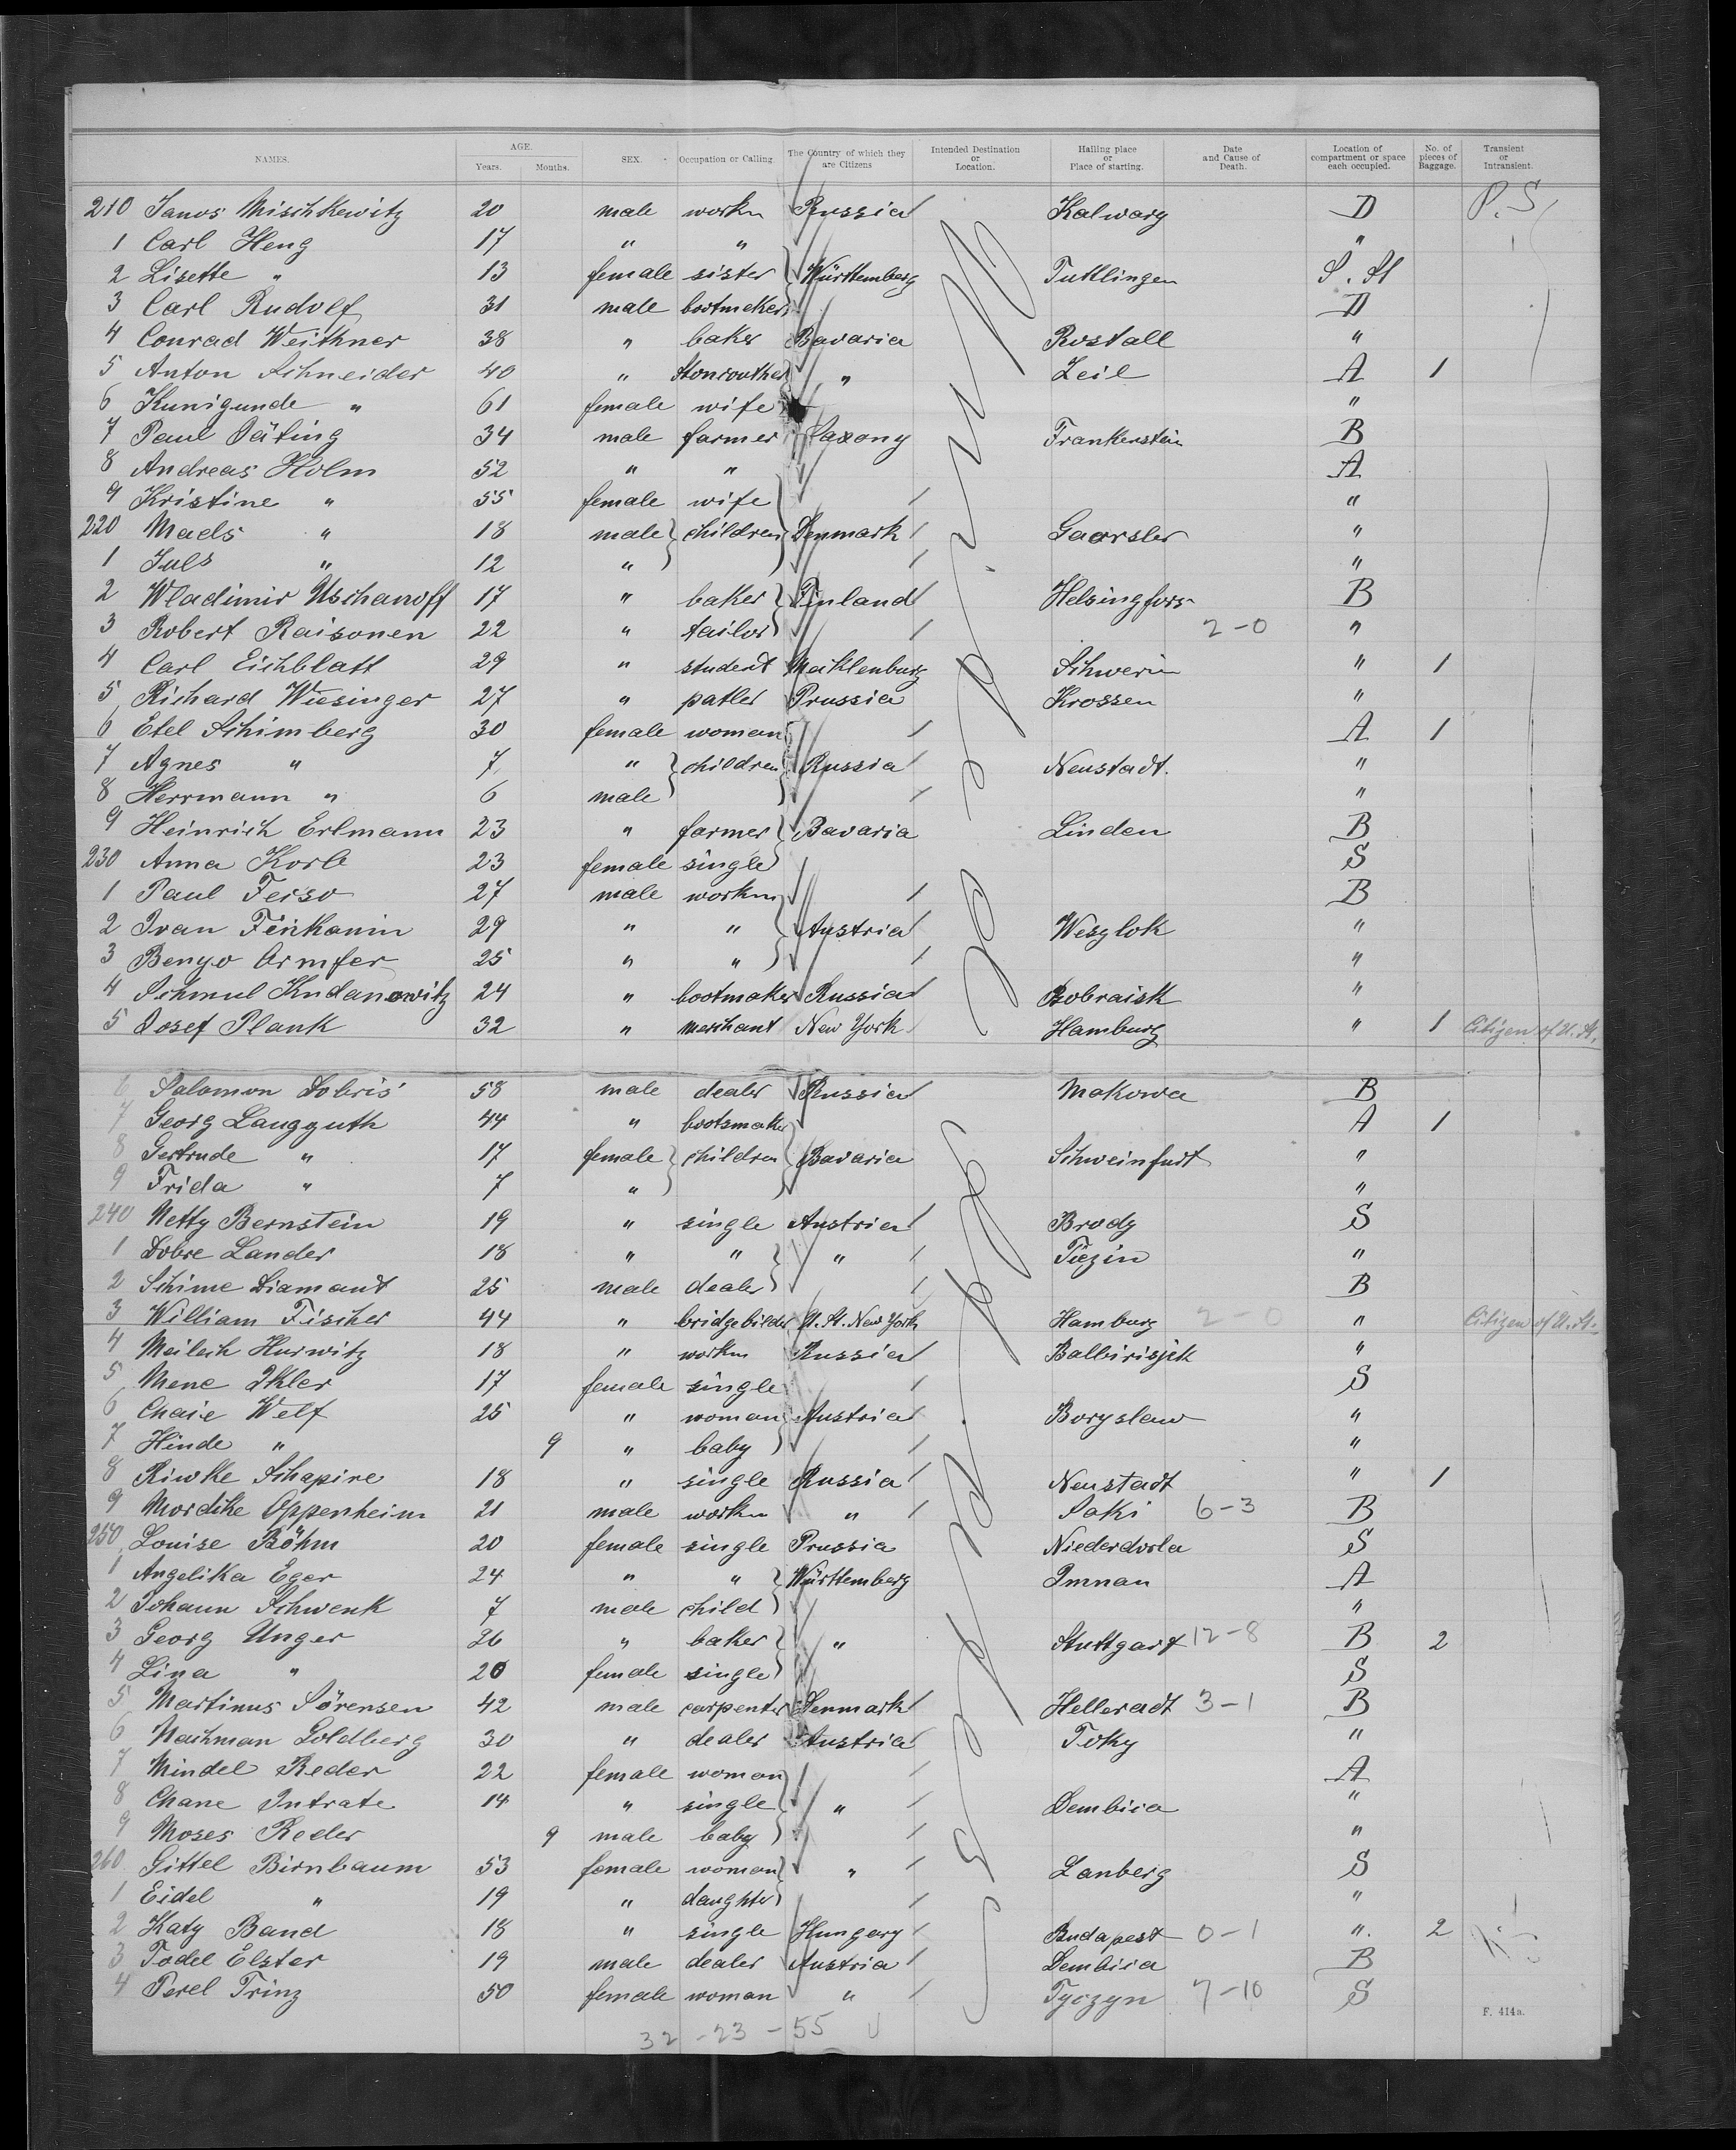 NAMES. AGE. Years. Months. SEX. Occupation or Calling. The Country of which they are Citizens Intended Destination or Location. Hailing place or Place of starting. Date and Cause of Death. Location of compartment or space each occupied. No. of pieces of Baggage. Transient or Intransient.
210 Janos Mischkewitz 20 male workn Russia Kalwary D P.S.
1 Carl Heng 17 " " "
2 Lisette " 13 female sister Württemberg Tuttlingen S. St
3 Carl Rudolf 31 male bootmeker D
4 Conrad Weithner 38 " baker Bavaria Rostall "
5 Anton Schneider 40 " " Zeil A 1
6 Kunigunde " 61 female wife "
7 Paul Däting 34 male farmer Saxony Frankenstein B
8 Andreas Holm 52 " " A
9 Kristine " 55 female wife "
220 Mads " 18 male children Denmark Gaarsler "
1 Juls " 12 " "
2 Wladimir Uschanoff 17 " baker Finland Helsingfors B
3 Robert Raisonen 22 " tailor 2-0 "
4 Carl Eichblatt 29 " student Mecklenburg Schwerin " 1
5 Richard Wiesinger 27 " patler Prussia Krossen "
6 Etel Schimberg 30 female woman A 1
7 Agnes " 7 " children Russia Neustadt. "
8 Herrmann " 6 male "
9 Heinrich Erlmann 23 " farmer Bavaria Linden B
230 Anna Korb 23 female single S
1 Paul Feiso 27 male workm B
2 Ivan Finkanin 29 " " Austria Wesglok "
3 Benyo Armfer 25 " " "
4 Schmul Kudanowitz 24 " bootmaker Russia Bobraisk "
5 Josef Plank 32 " merchant New York Hamburg " 1 Citizen of U. St.
6 Salomon Dobris 58 male dealer Russia Makowa B
7 Georg Langguth 44 " bootsmaker A 1
8 Gertrude " 17 female children Bavaria Schweinfurt "
9 Frida " 7 " "
240 Netty Bernstein 19 " single Austria Brody S
1 Dobre Lander 18 " " " Tiezin "
2 Schime Diamant 25 male dealer B
3 William Fischer 44 " bridgebilder U. St. New York Hamburg 2-0 " Citizen of U. St.
4 Meilech Hurwitz 18 " workm Russia Balbirisjek "
5 Mene Ikler 17 female single S
6 Chaie Welf 25 " woman Austria Boryslaw "
7 Hinde " 9 " baby "
8 Riwke Schapire 18 " single Russia Neustadt " 1
9 Mordche Oppenheim 21 male workm " Saki 6-3 B
250 Louise Böhm 20 female single Prussia Niederdorla S
1 Angelika Eger 24 " " Württemberg Imnau A
2 Johann Schwenk 7 male child "
3 Georg Unger 26 " baker " Stuttgart 12-8 B 2
4 Lina " 20 female single S
5 Martinus Sörensen 42 male carpenter Denmark Helleradt 3-1 B
6 Nachman Goldberg 30 " dealer Austria Toky "
7 Mindel Reder 22 female woman A
8 Chane Intrate 14 " single " Dembica "
9 Moses Reder 9 male baby "
260 Gittel Birnbaum 53 female woman " Lanberg S
1 Eidel " 19 " daughter "
2 Katy Band 18 " single Hungary Budapest 0-1 " 2
3 Todel Elster 19 male dealer Austria Dembica B
4 Perel Trinz 50 female woman " Tyczyn 7-10 S
F. 414a.
32 - 23 - 55